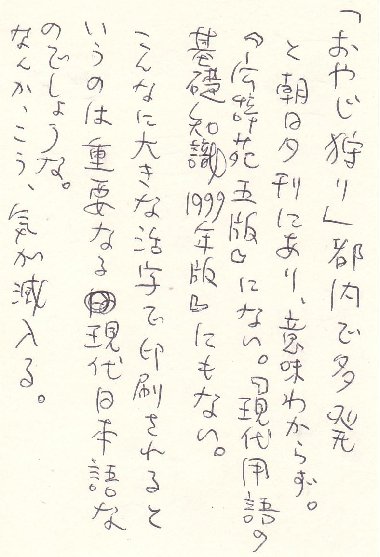 「おやじ狩り」都内で多発
と朝日夕刊にあり、意味わからず。
『広辞苑五版』にない。『現代用語の
基礎知識1999年版』にもない。
こんなに大きな活字で印刷されると
いうのは重要なる現代日本語な
のでしょうな。
なんか、こう、気が滅入る。